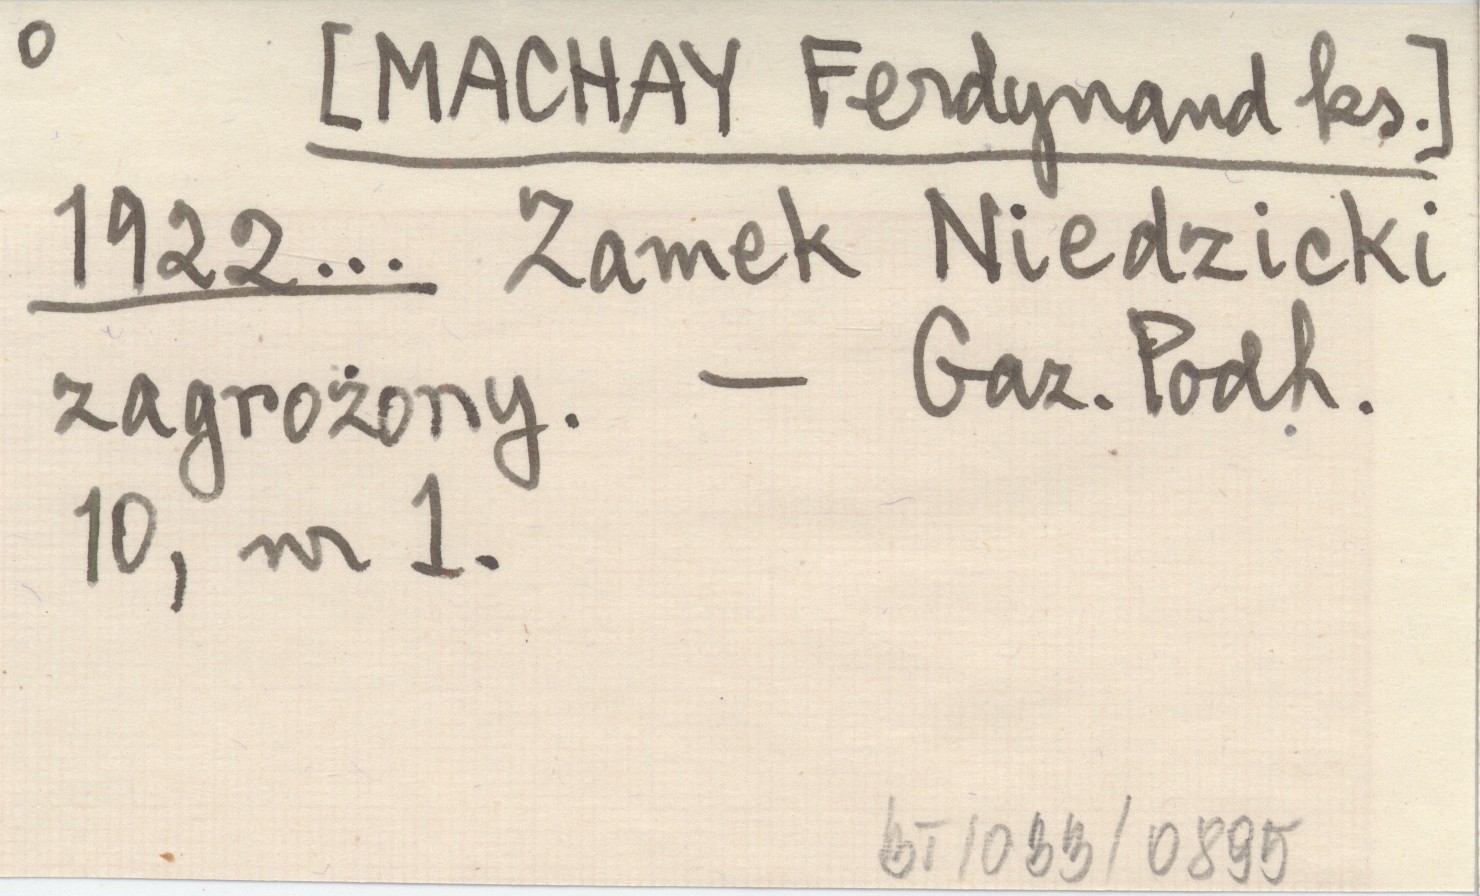 o [MACHAY Ferdynand ks.]
1922... Zamek Niedzicki
zagrożony. — Gaz. Podh.
10, nr 1.
BT/033/0895